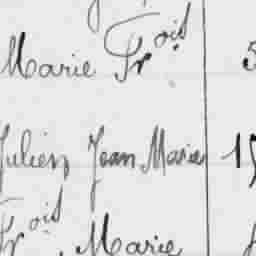 Marie Frçois 5
Julien Jean Marie 15
Frçois, Marie